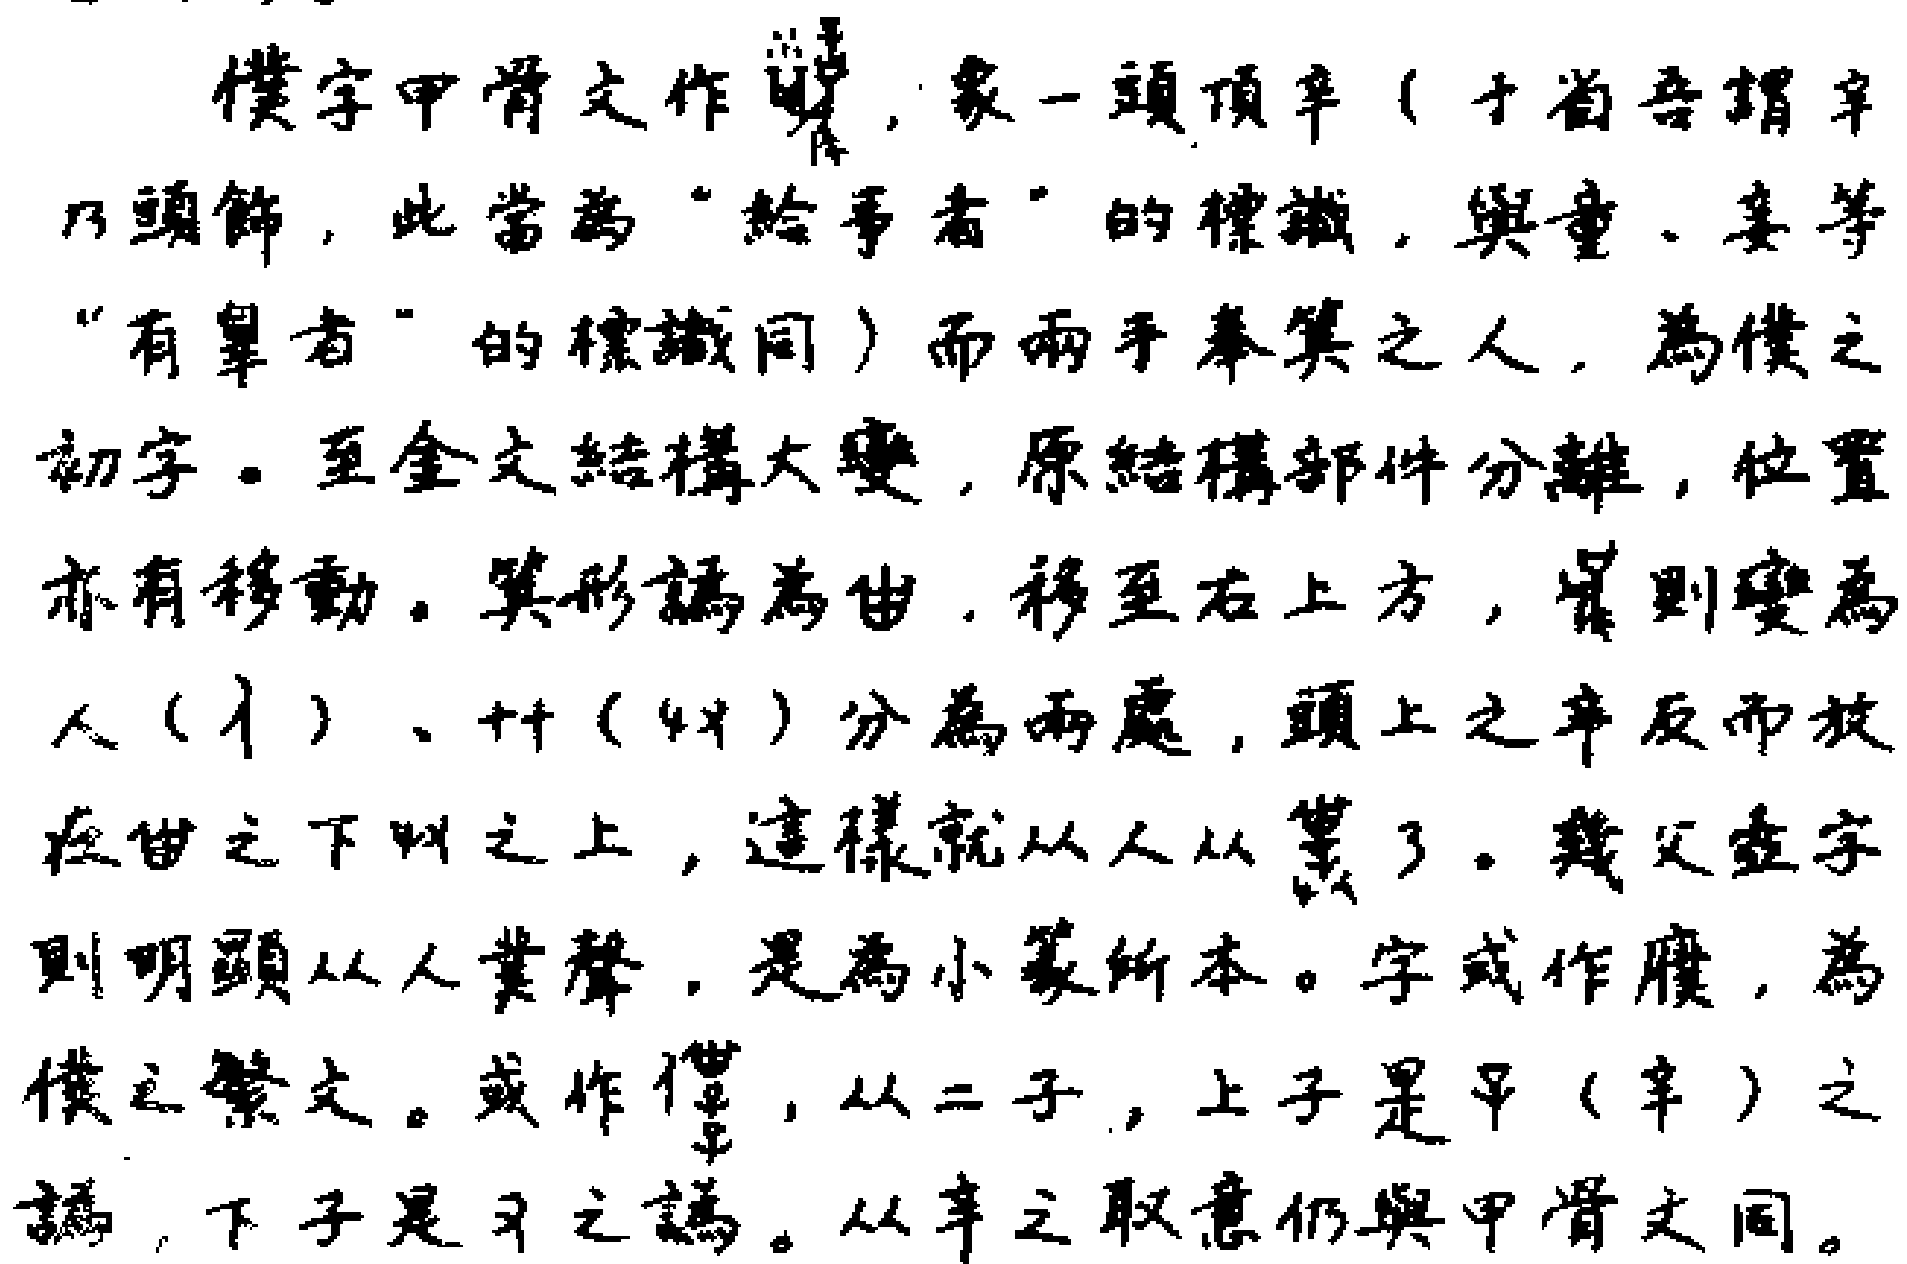 僕字甲骨文作，象一頭頂辛（于省吾謂辛
乃頭飾，此當為“給事者”的標識，與童、妾等
“有辠者”的標識同）而兩手奉箕之人，為僕之
初字。至金文結構大變，原結構部件分離，位置
亦有移動。箕形譌為甾，移至右上方，則變為
人（亻）、廾（）分為兩處，頭上之辛反而放
在甾之下之上，這樣就从人从了。幾父壺字
則明顯从人菐聲，是為小篆所本。字或作㒒，為
僕之繁文。或作，从二子，上子是（辛）之
譌，下子是又之譌。从辛之取意仍與甲骨文同。